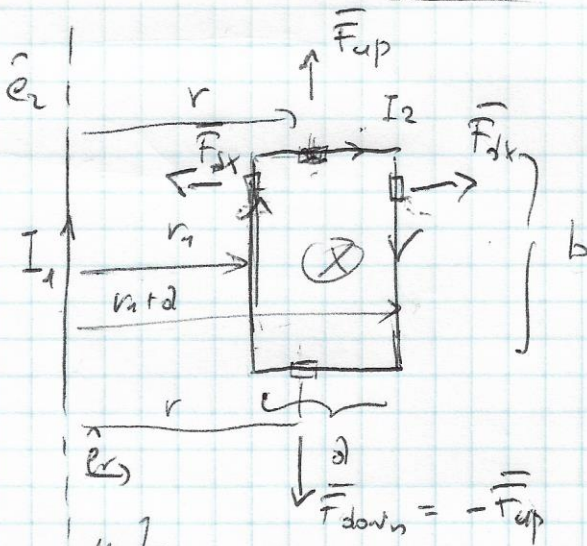 F̅up
ê₂
r
I₂
F̅dx
F̅dx
r₁
I₁
⊗
b
r₁+a
r
êr
a
F̅down = -F̅up